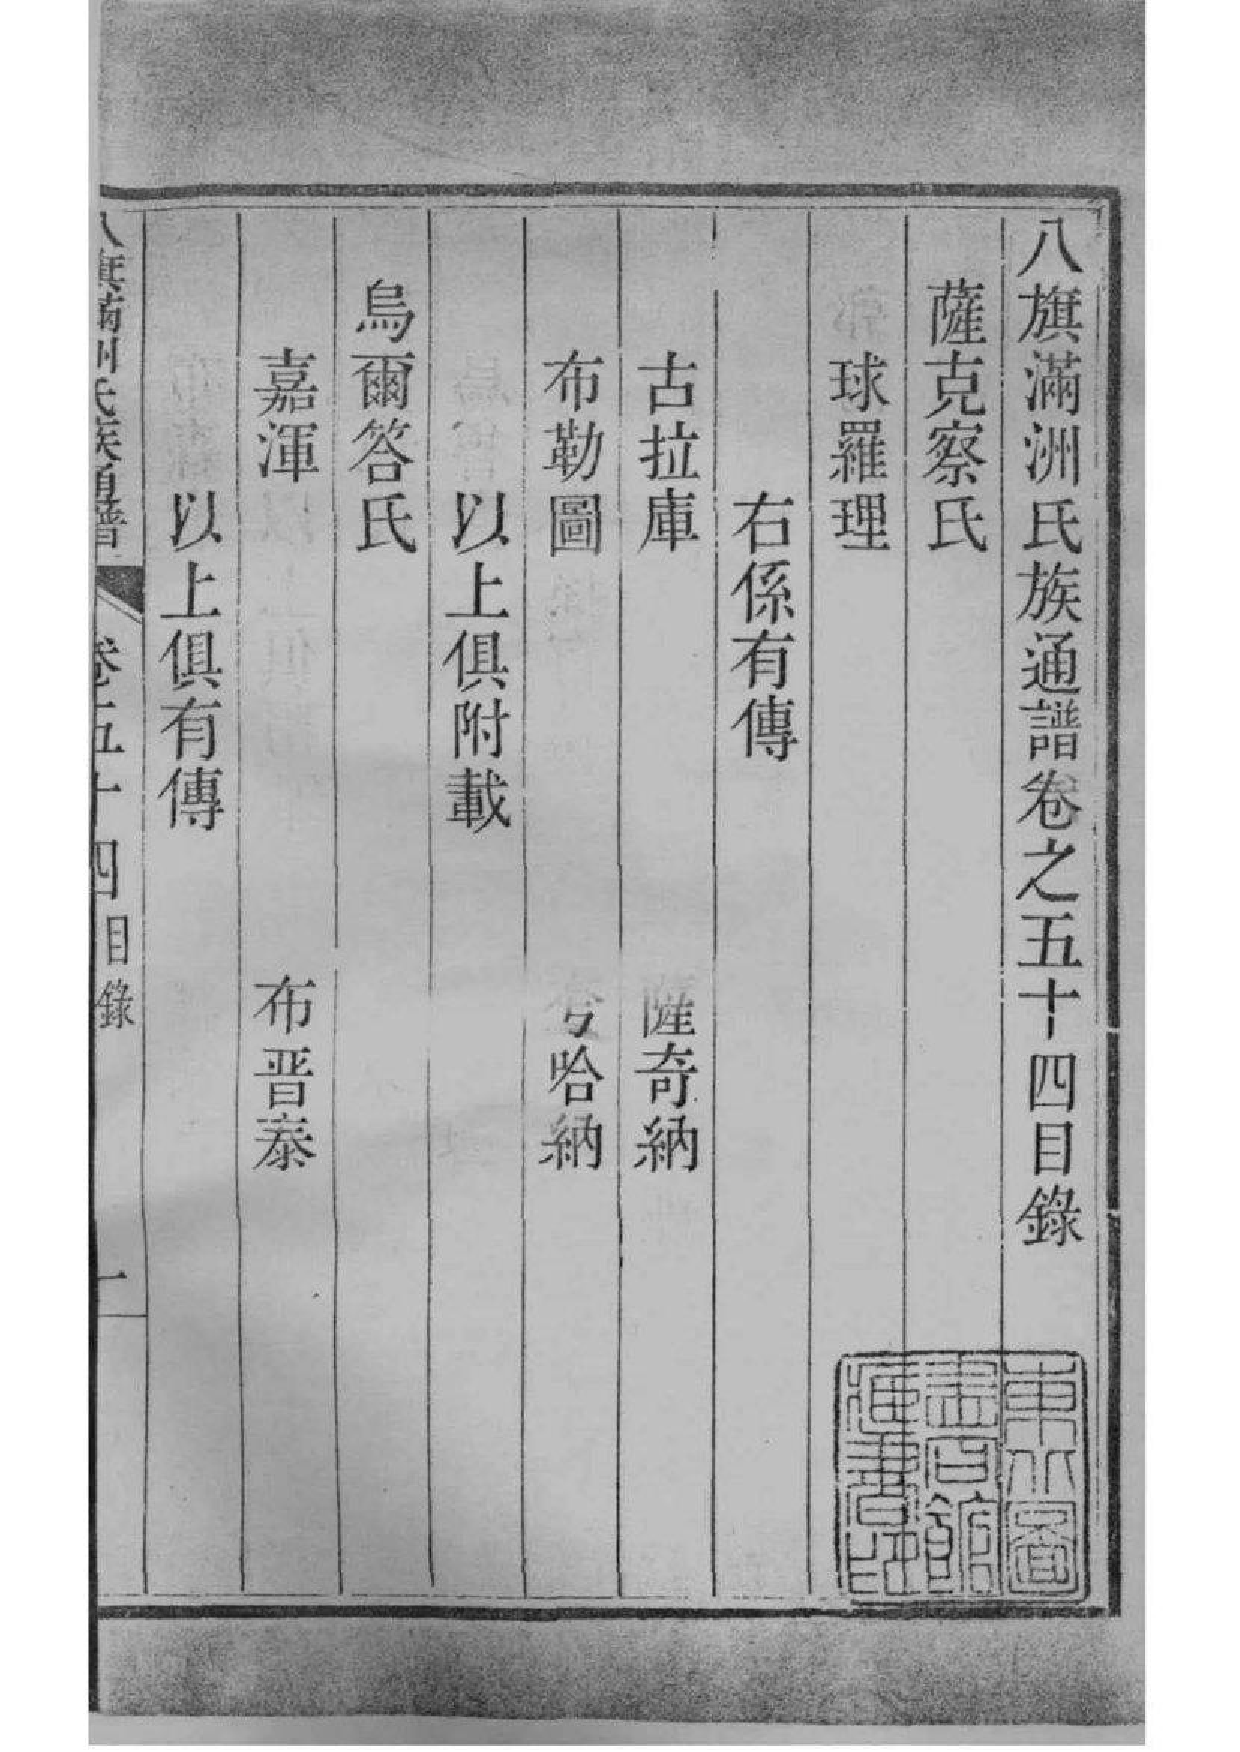 八旗滿洲氏族通譜卷之五十四目錄
薩克察氏
球羅理
右係有傳
古拉庫 薩奇納
布勒圖 哈納
以上俱附載
烏爾答氏
嘉渾 布晋泰
以上俱有傳
八旗滿洲氏族通譜 卷五十四 目錄 一
東北圖
書館
書印